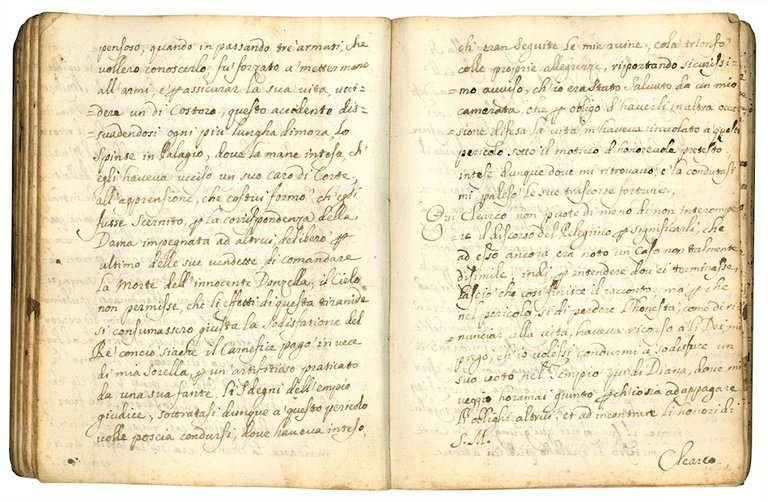 pensoso, quando in passando trè armati, che
vollero conoscerlo, fù forzato a metter mano
all'armi, e ꝑ assicurar la sua vita, ucci=
=dere un di Costoro, questo accidente dis=
=suadendosi ogni più lungha dimora, lo
spinse in Palagio, dove la mane intese, ch'
egli haveva ucciso un suo caro di Corte,
all'apprensione, che costui formò ch'egli
fusse schernito, ꝑ la corrispondenza della
Dama impegnata ad altrui, deliberò ꝑ
ultimo delle sue vendette di comandare
la morte dell'innocente Donzella, il Cielo
non permisse, che li effetti di questa tiranide
si consumassero giusta la sodisfatione del
Rè, concio siache il Carnefice pagò in vece
di mia sorella, ꝑ un artifitioso praticato
da una sua fante, li sdegni dell'empio
giudice, sottratasi dunque a questo pericolo
volle poscia condursi, dove haveva inteso,
ch'eran seguite le mie ruine, colà trionfò
colle proprie allegrezze, riportando sicurissi=
=mo avviso, ch'io era stato salvato da un mio
camerata, che ꝑ obligo d'haverli in altra occa
sione difesa la vita, m'haveva rinvolato a questi
pericolo sotto il motivo d'honorevole pretesto
intese dunque dove mi ritrovavo, e la condutasi
mi palesò le sue trascorse fortune,
Qui Clearco non puote di meno di non interompe
re il discorso del Pelegrino, ꝑ significarli, che
ad esso ancora era noto un caso non totalmente
dissimile, indi ꝑ intendere dov'ei terminasse,
lasciò che così finisse il racconto, ma ꝑ che
nel pericolo, sì di perdere l'honestà, come di ri=
=nunciar alla vita, haveva ricorso a li Dei, mi
pregò, ch'io volessi condurmi a sodisfare un
suo voto nel Tempio qui di Diana, dove mi
veggio horamai giunto ꝑ ch'io sia ad appagare
li oblighi altrui, et ad incontrare li honori di
S. M.
Clearco